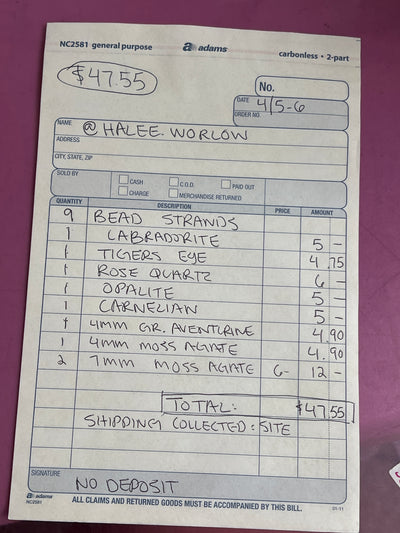 NC2581 general purpose
adams
carbonless • 2-part
$47.55
No.
DATE 4/5-6
ORDER NO.
NAME @ HALEE.WORLOW
ADDRESS
CITY, STATE, ZIP
SOLD BY
CASH C.O.D. PAID OUT
CHARGE MERCHANDISE RETURNED
QUANTITY DESCRIPTION PRICE AMOUNT
9 BEAD STRANDS
1 LABRADORITE 5 –
1 TIGERS EYE 4.75
1 ROSE QUARTZ 6 –
1 OPALITE 5 –
1 CARNELIAN 5 –
1 4MM GR. AVENTURINE 4.90
1 4MM MOSS AGATE 4.90
2 7MM MOSS AGATE 6- 12 –
TOTAL: $47.55
SHIPPING COLLECTED: SITE
SIGNATURE
NO DEPOSIT
adams
NC2581
ALL CLAIMS AND RETURNED GOODS MUST BE ACCOMPANIED BY THIS BILL.
01-11